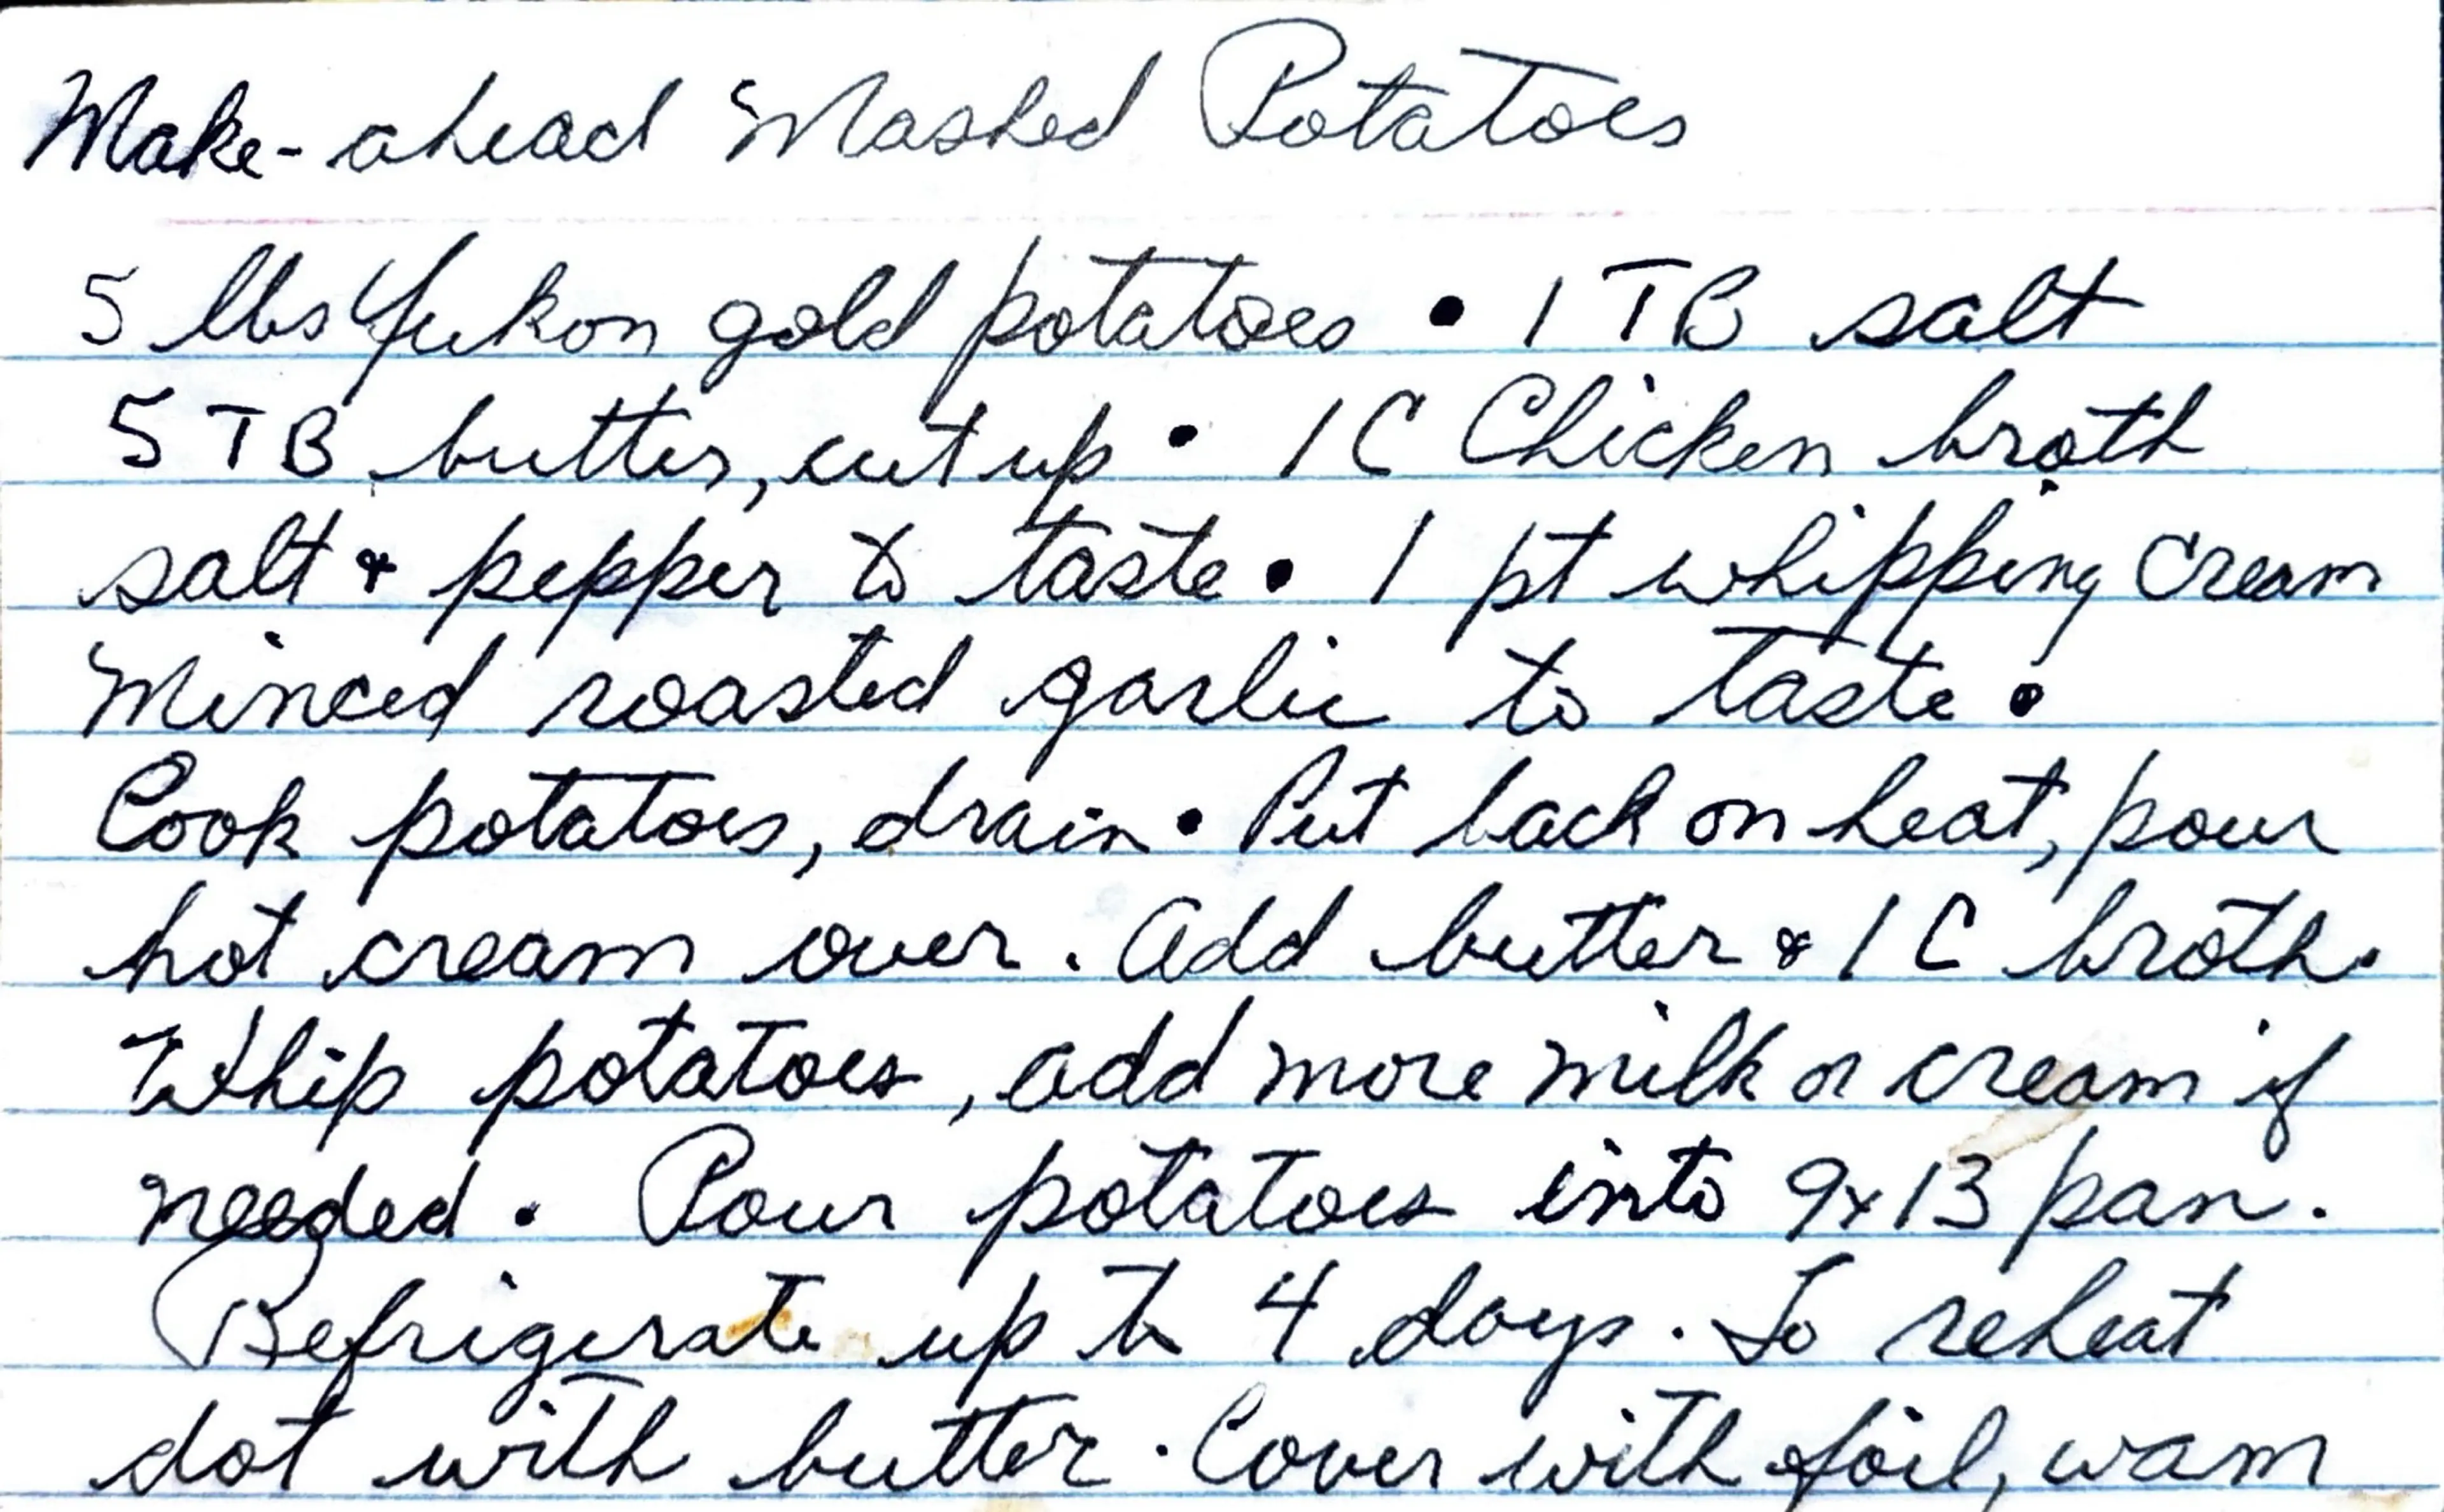 Make-ahead Mashed Potatoes
5 lbs Yukon gold potatoes • 1 TB salt
5 TB butter, cut up • 1 C Chicken broth
salt & pepper to taste • 1 pt whipping cream
Minced roasted garlic to taste •
Cook potatoes, drain • Put back on heat, pour
hot cream over. Add butter & 1 C broth.
Whip potatoes, add more milk or cream if
needed. Pour potatoes into 9x13 pan.
Refrigerate up to 4 days. To reheat
dot with butter. Cover with foil, warm